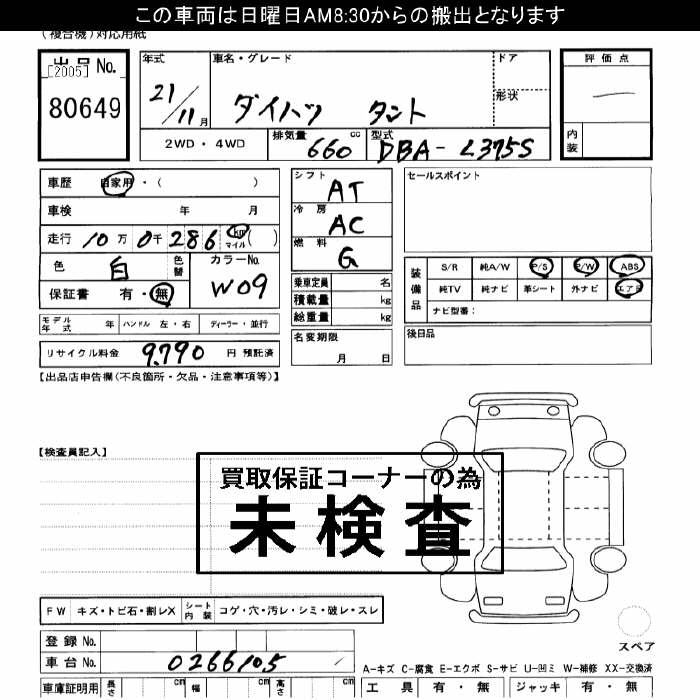 この車両は日曜日AM8:30からの搬出となります
(複合機)対応用紙
出品No.
[2005]
80649
年式
21/11月
車名・グレード
ダイハツ タント
ドア
形状
2WD・4WD
排気量 660 cc
型式 DBA-L375S
評価点
内装
車歴 自家用・( )
車検 年 月
走行 10万0千286 km マイル( )
色 白
色替
カラーNo. W09
保証書 有・無
モデル年式 年
ハンドル 左・右
ディーラー・並行
リサイクル料金 9,790 円 預託済
シフト AT
冷房 AC
燃料 G
乗車定員 名
積載量 kg
総重量 kg
名変期限
月 日
セールスポイント
装備品
S/R 純A/W P/S P/W ABS
純TV 純ナビ 革シート 外ナビ エアB
ナビ型番:
後日品
【出品店申告欄(不良箇所・欠品・注意事項等)】
【検査員記入】
買取保証コーナーの為
未検査
FW キズ・トビ石・割レX
シート内装 コゲ・穴・汚レ・シミ・破レ・スレ
登録No.
車台No. 0266105
車庫証明用 長さ cm 幅 cm 高さ cm
スペア
A-キズ C-腐食 E-エクボ S-サビ U-凹ミ W-補修 XX-交換済
工具 有・無 ジャッキ 有・無